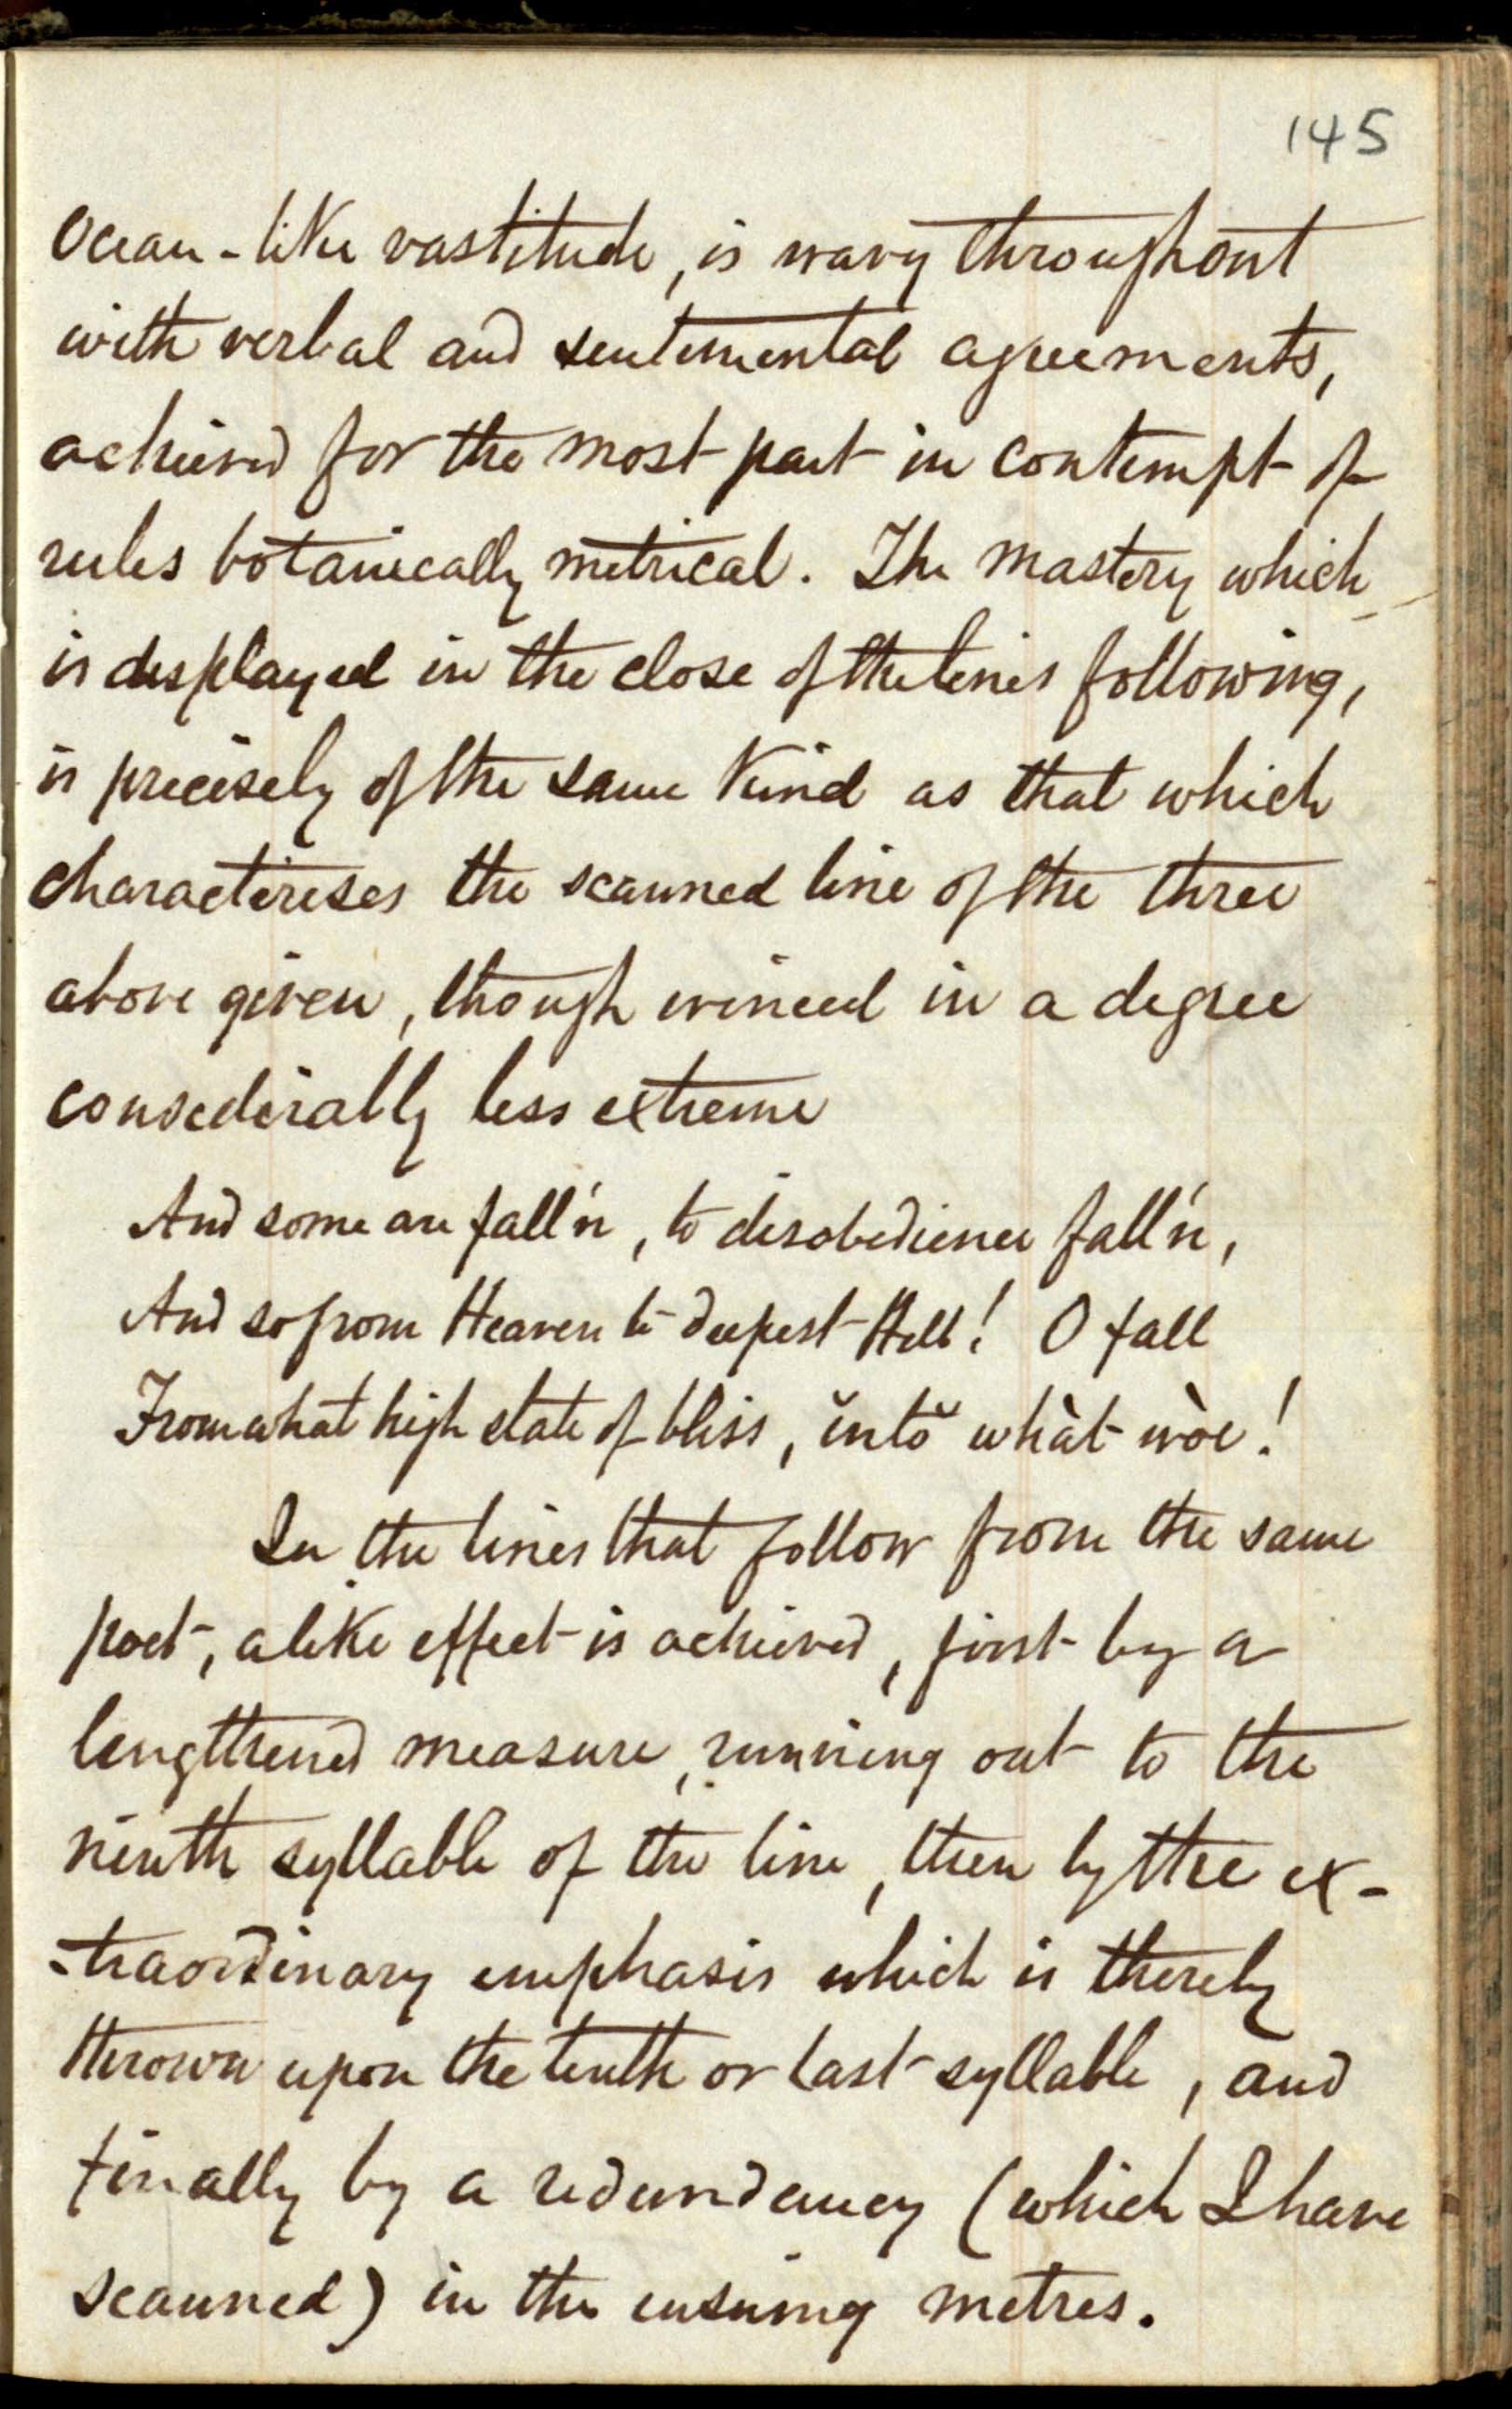 145
Ocean-like vastitude, is wavy throughout
with verbal and sentimental agreements,
achieved for the most part in contempt of
rules botanically metrical. The mastery which
is displayed in the close of the lines following,
is precisely of the same kind as that which
characterises the scanned line of the three
above given, though evinced in a degree
considerably less extreme
And some are fall'n, to disobedience fall'n,
And so from Heaven to deepest Hell! O fall
From what high state of bliss, ĭntŏ whàt wòe!
In the lines that follow from the same
poet, a like effect is achieved, first by a
lengthened measure, running out to the
ninth syllable of the line, then by the ex-
-traordinary emphasis which is thereby
thrown upon the tenth or last syllable, and
finally by a redundancy (which I have
scanned) in the ensuing metres.